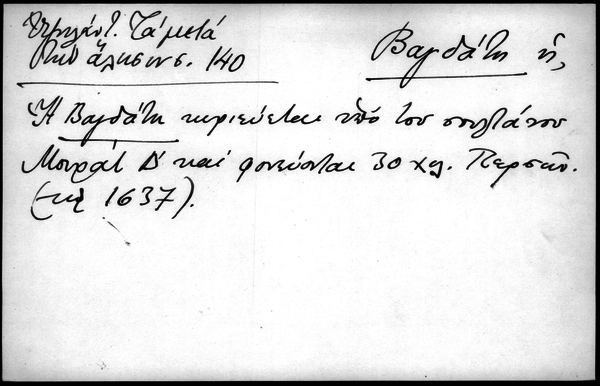 Ὑψηλάντ. Τά μετά
τήν ἅλωσιν σ. 140
Βαγδάτη ἡ,
Ἡ Βαγδάτη κυριεύεται ὑπό του σουλτάνου
Μουράτ Δ' καί φονεύονται 30 χιλ. Περσῶν.
(τῷ 1637).